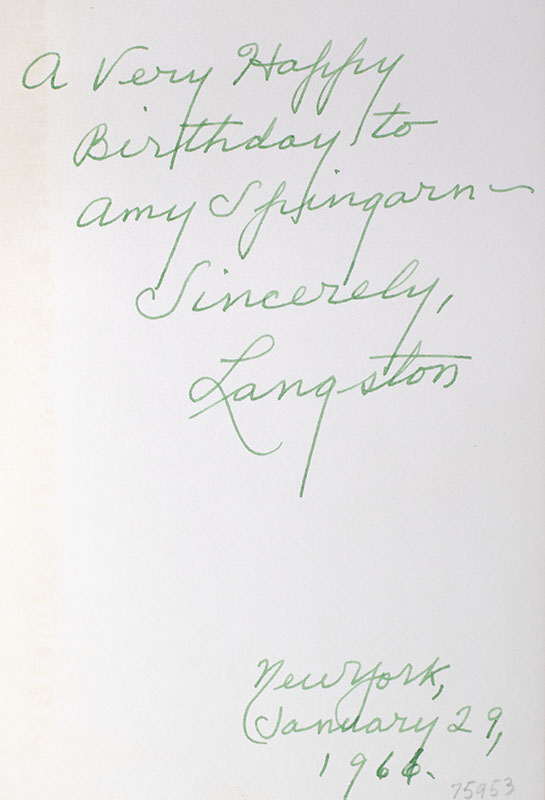 A Very Happy
Birthday to
Amy Spingarn—
Sincerely,
Langston
New York,
January 29,
1966.
75953